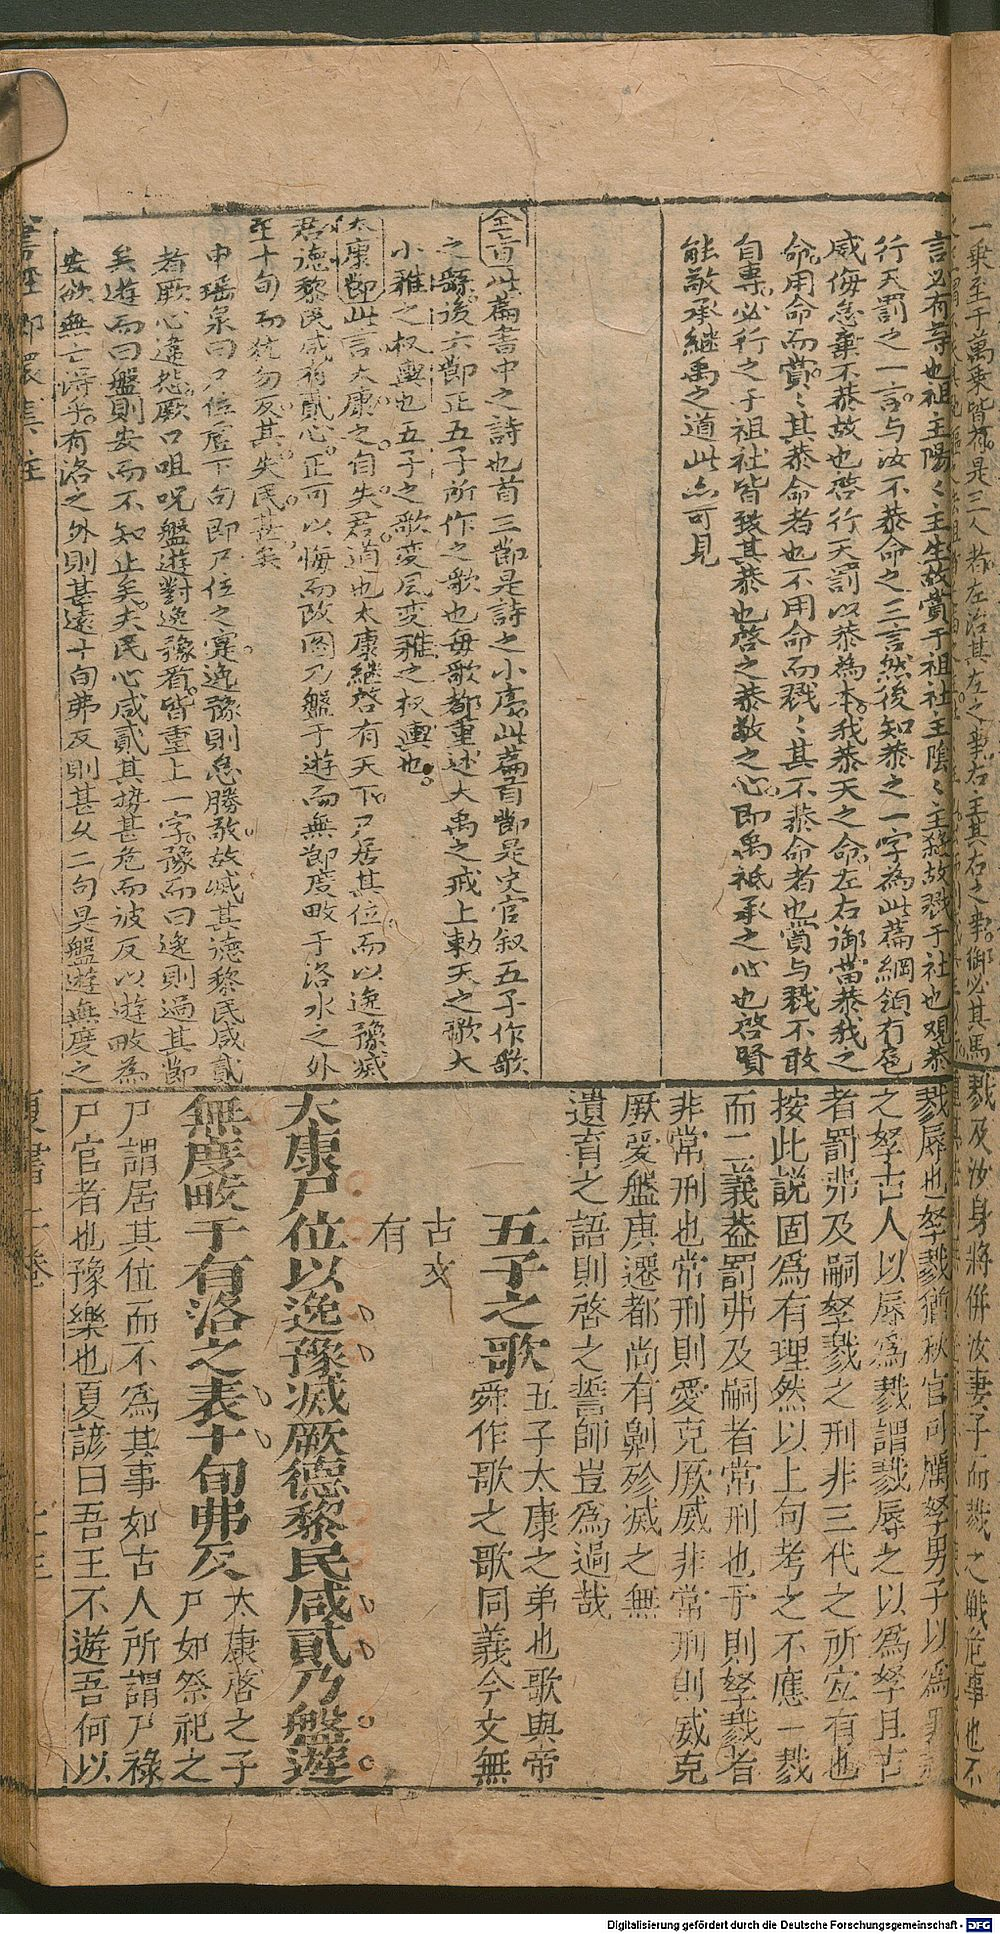 言必有尊也祖主陽〻主生故賞于祖社主陰〻主殺故戮于社也观恭
行天罰之一言与汝不恭命之三言然後知恭之一字為此篇綱領有扈
威侮怠棄不恭故也啓行天罰以恭為本我恭天之命左右御當恭我之
命用命而賞〻其恭命者也不用命而戮〻其不恭命者也賞与戮不敢
自專必行之于祖社皆致其恭也啓之恭敬之心即禹祗承之心也啓賢
能敬承継禹之道此亦可見
全旨此篇書中之詩也首三節是詩之小序此篇首節是史官叙五子作歌
之繇後六節正五子所作之歌也毎歌都重述大禹之戒上勅天之歌大
小雅之权輿也五子之歌变風变雅之权輿也
太康節此言太康之自失君道也太康継啓有天下只居其位而以逸豫滅
君德黎民咸有貳心正可以悔而改図乃盤于遊而無節度畋于洛水之外
至十旬而犹勿反其失民甚矣
申瑶泉曰尸位虚下句即尸位之寔逸豫則怠勝敬故滅其德黎民咸貳
者厥心違怨厥口咀呪盤遊對逸豫看皆重上一字豫而曰逸則過其節
矣遊而曰盤則安而不知止矣夫民心咸貳其势甚危而彼反以遊畋為
安欲無亡得乎有洛之外則甚遠十旬弗反則甚久二句具盤遊無度之
戮辱也孥戮猶秋官司厲孥男子以爲罪隸
之孥古人以辱爲戮謂戮辱之以爲孥耳古
者罰弗及嗣孥戮之刑非三代之所宜有也
按此説固爲有理然以上句考之不應一戮
而二義葢罰弗及嗣者常刑也予則孥戮者
非常刑也常刑則愛克厥威非常刑則威克
厥愛盤庚遷都尚有劓殄滅之無
遺育之語則啓之誓師豈爲過哉
五子之歌 五子太康之弟也歌與帝
舜作歌之歌同義今文無
古文
有
太康尸位以逸豫滅厥德黎民咸貳乃盤遊
無度畋于有洛之表十旬弗反 太康啓之子
尸如祭祀之
尸謂居其位而不爲其事如古人所謂尸祿
尸官者也豫樂也夏諺曰吾王不遊吾何以
Digitalisierung gefördert durch die Deutsche Forschungsgemeinschaft - DFG